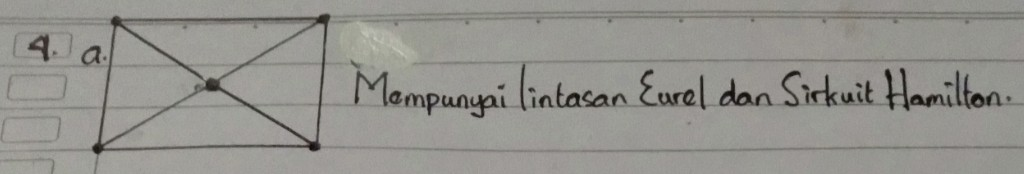 4. a.
Mempunyai lintasan Eurel dan Sirkuit Hamilton.